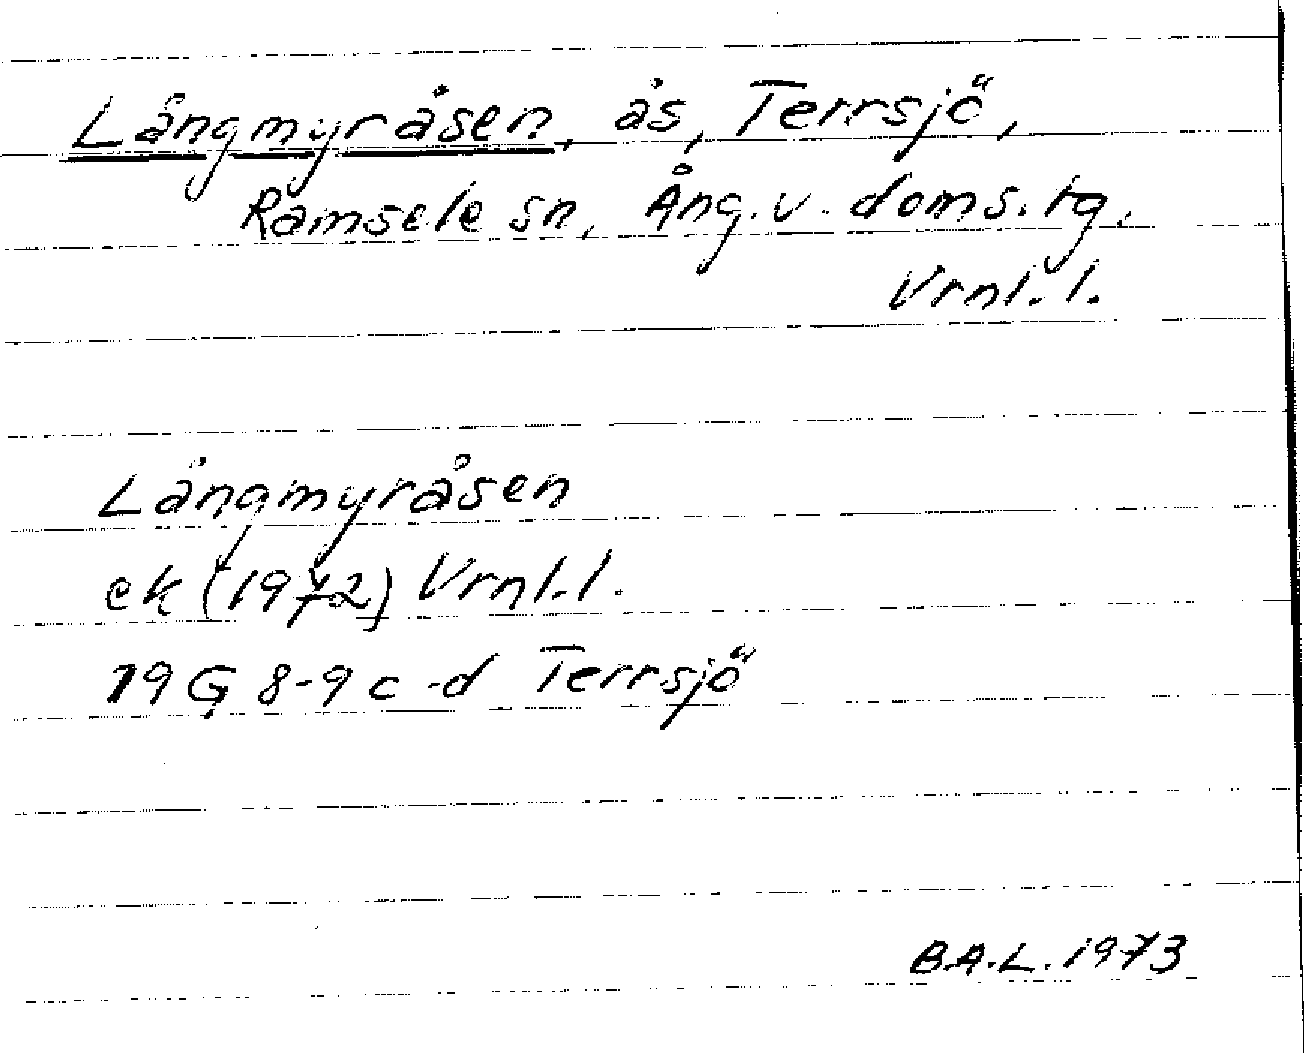 Långmyråsen, ås, Terrsjö,
Ramsele sn, Ång. v. doms. tg.
Vrnl. l.
Långmyråsen
ek (1972) Vrnl. l.
19 G 8-9 c-d Terrsjö
B.A.L. 1973